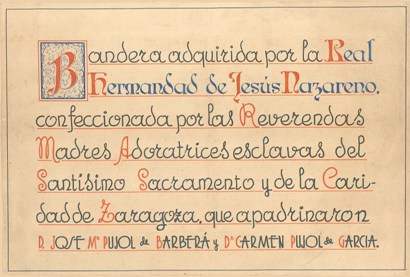 Bandera adquirida por la Real
Hermandad de Jesús Nazareno,
confeccionada por las Reverendas
Madres Adoratrices esclavas del
Santísimo Sacramento y de la Cari-
dad de Zaragoza, que apadrinaron
D. JOSE Mª PUJOL de BARBERÁ y Dª CARMEN PUJOL de GARCIA.